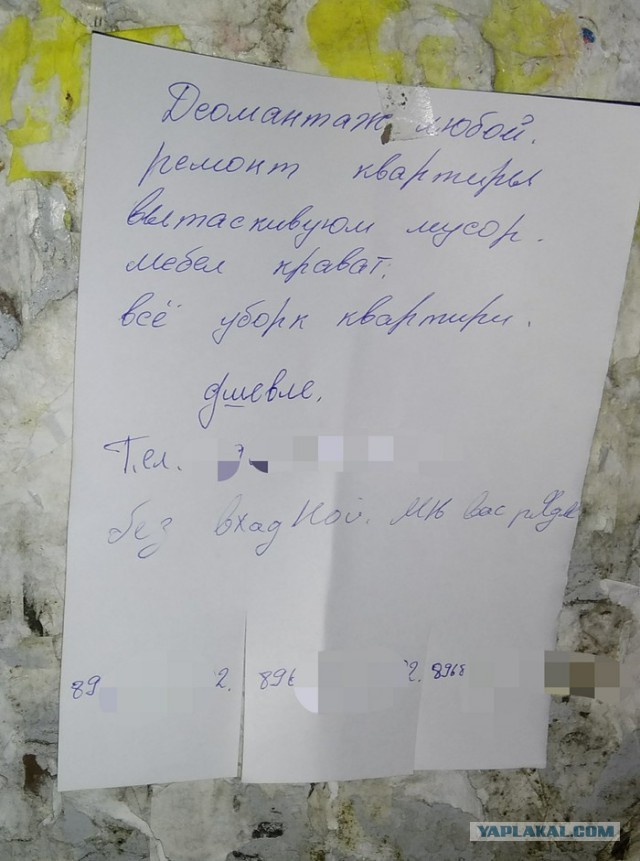 Деомантаж любой.
ремонт квартиры
вытаскивуюм мусор.
мебел крават.
всё уборк квартири.
дшевле.
Тел.
без вхад ной. мы вас рядм
89 2. 896 2. 8968
YAPLAKAL.COM